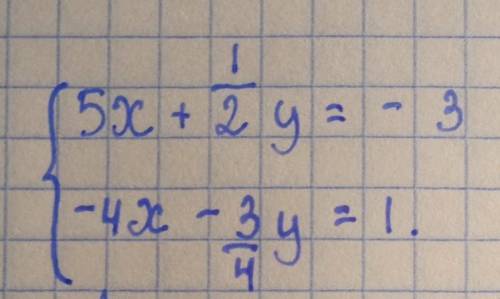 5x + 1/2 y = - 3
-4x - 3/4 y = 1.